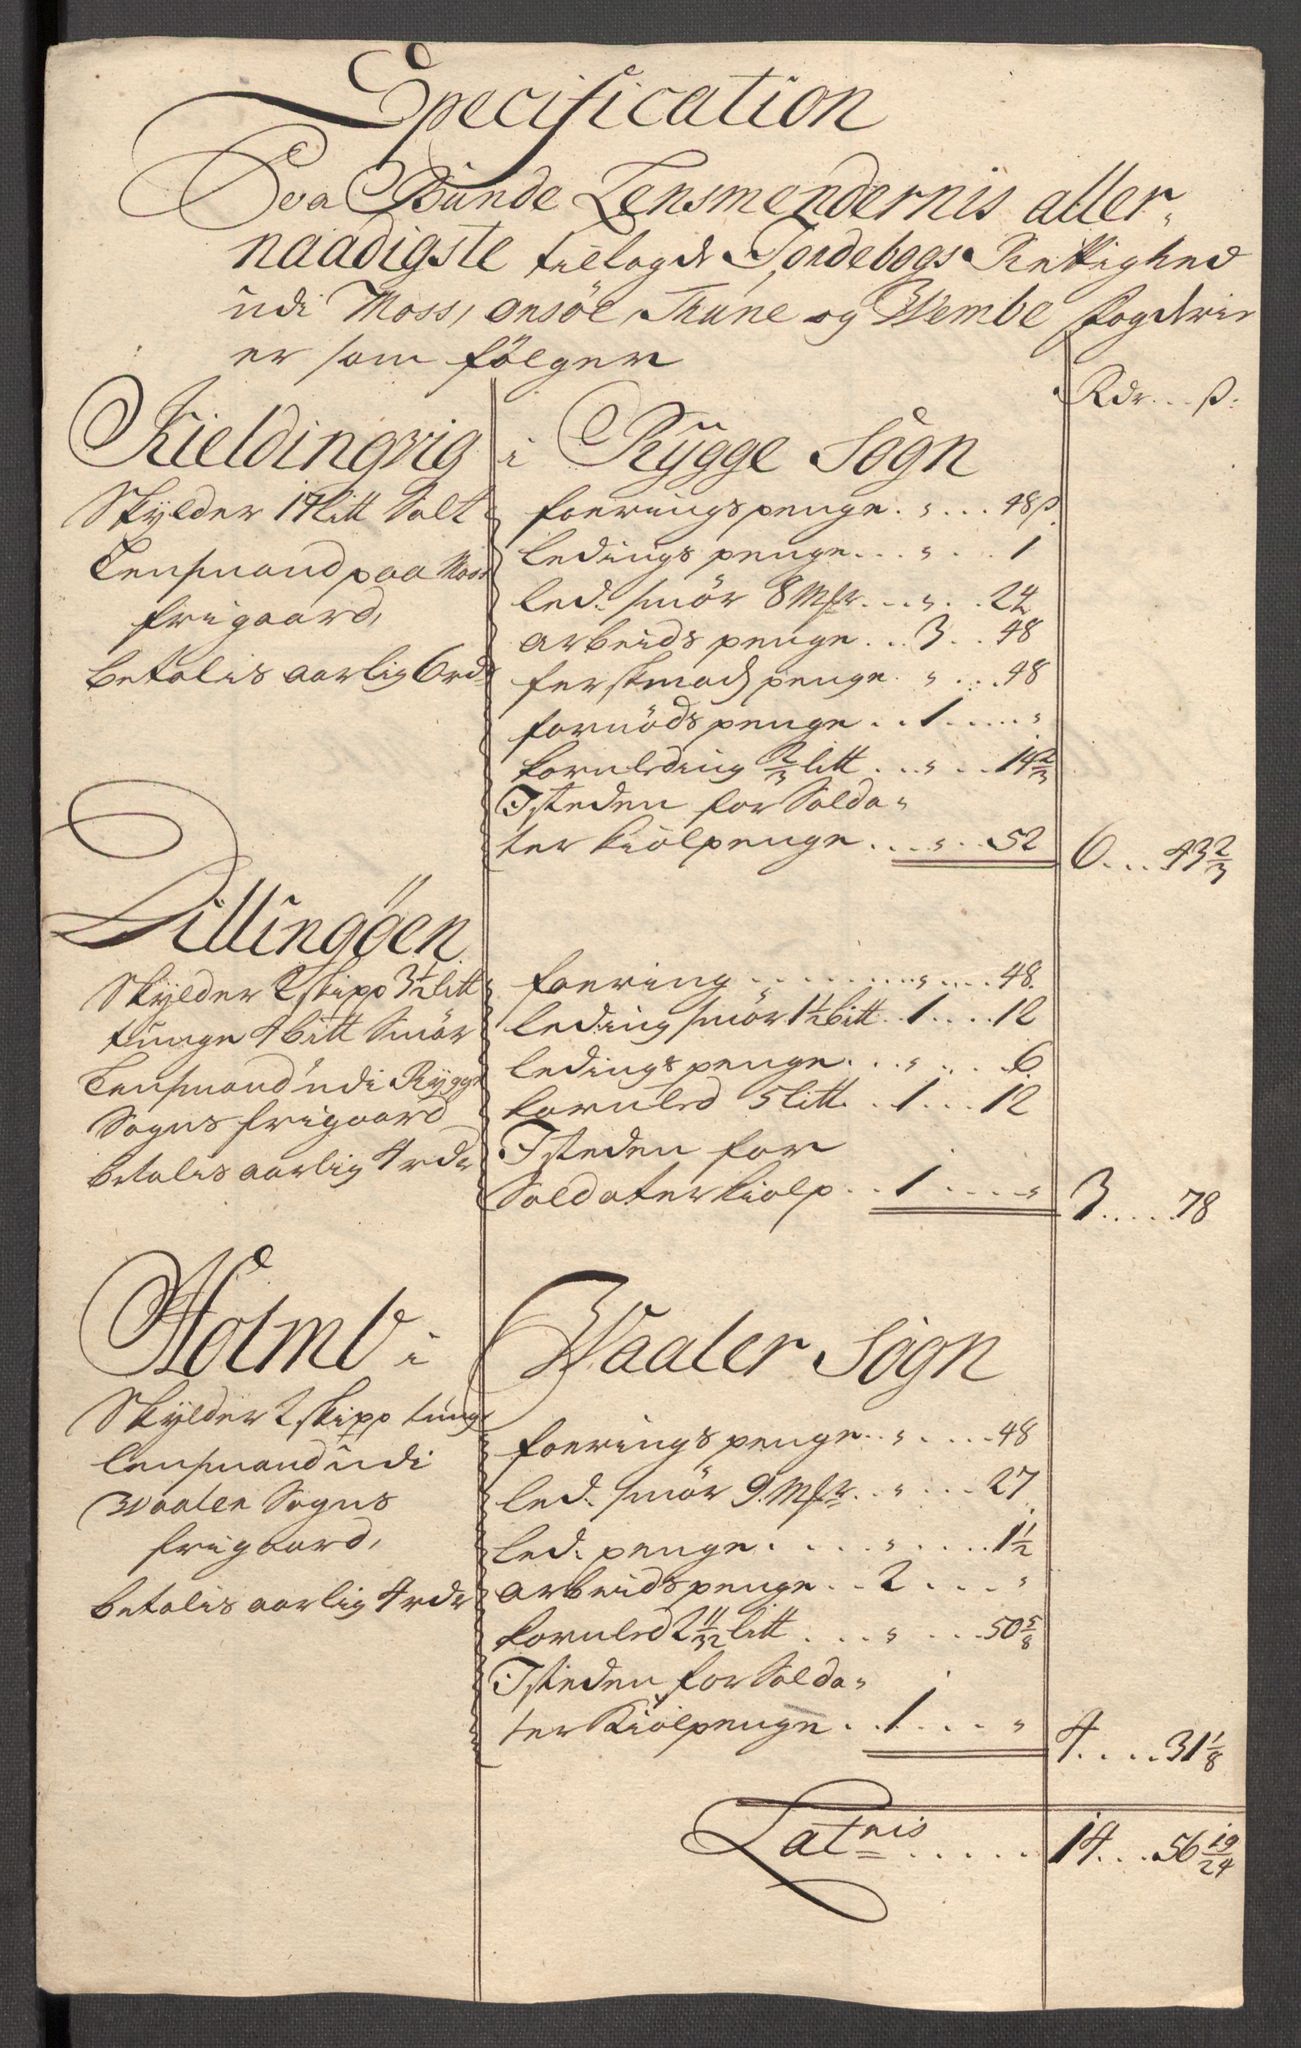 Specification
Hva Bunde Lensmendernis aller-
naadigste tillagde Jordebogs Rettighed
udi Moss, onsöe, Thune og Wembe fogderie
er som fölger
Rdr. . . ß.
Kieldingvig i Rÿgge Sogn
Skÿlder 17 litt Salt
Lensmand paa Moss
frigaard,
betalis aarlig 6 rdr
foeringspenge . " . . . 48 ß.
ledings penge . . . " . . . 1
led: smör 8 Mkr . . . " . . 24
arbeids penge . . 3 . . 48
ferskmads penge . " . . . 48
fornöds penge . . 1 . . . . "
kornleding 2/3 litt . . . " . . 14 2/3
Isteden for Solda-
ter kiolpenge . . . " . . 52
6 . . . 43 2/3
Dillingöen
Skÿlder 2 skipp 3 1/2 litt
tunge 4 bitt Smör
Lensmand udi Rÿgge
Sogns frigaard
betalis aarlig 4 rdr
foering . . . . . . . . . " . . . . 48.
leding smör 1 1/2 bitt . 1 . . . . 12
ledings penge . . . " . . . 6
kornled 5 litt . . 1 . . . 12
Isteden for
Soldater kiolp . . 1 . . . . "
3 . . . . . 78
Holmb i Waaler Sogn
Skÿlder 2 skipp tunge
lensmand udi
Waaler Sogns
frigaard,
betalis aarlig 4 rdr
foerings penge . . " . . . . 48
led: smör 9 Mkr . . " . . . 27
led: penge . . . . . " . . . . . 1 1/2
arbeids penge . . 2 . . . . "
kornled 2 11/32 litt . . . . " . . . 50 5/8
Isteden for Solda-
ter Kiölpenge . . 1 . . . "
4 . . . . 31 1/8
Latris . . . . . 14 . . . 56 19/24